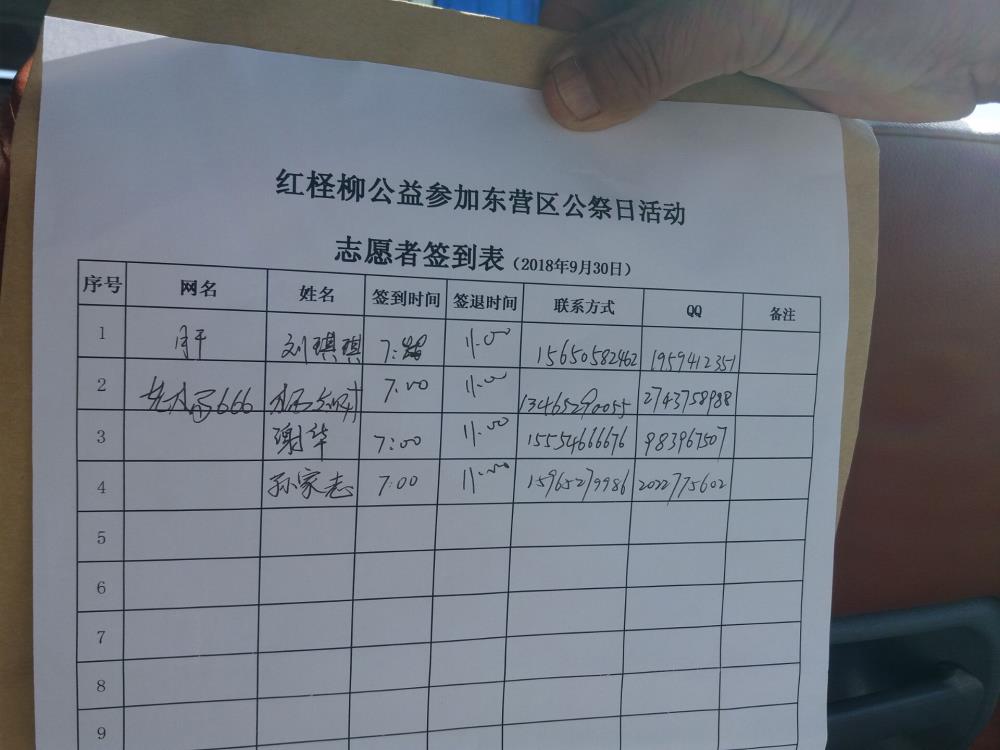 红柽柳公益参加东营区公祭日活动
志愿者签到表（2018年9月30日）
序号 网名 姓名 签到时间 签退时间 联系方式 QQ 备注
1 刘琪琪 7: 11.00 15650582462 1959412351
2 666 7.00 11.00 13465290055 2743758988
3 谢华 7:00 11.00 15554666676 983967507
4 孙家志 7:00 11.00 15965279986 2022775602
5
6
7
8
9